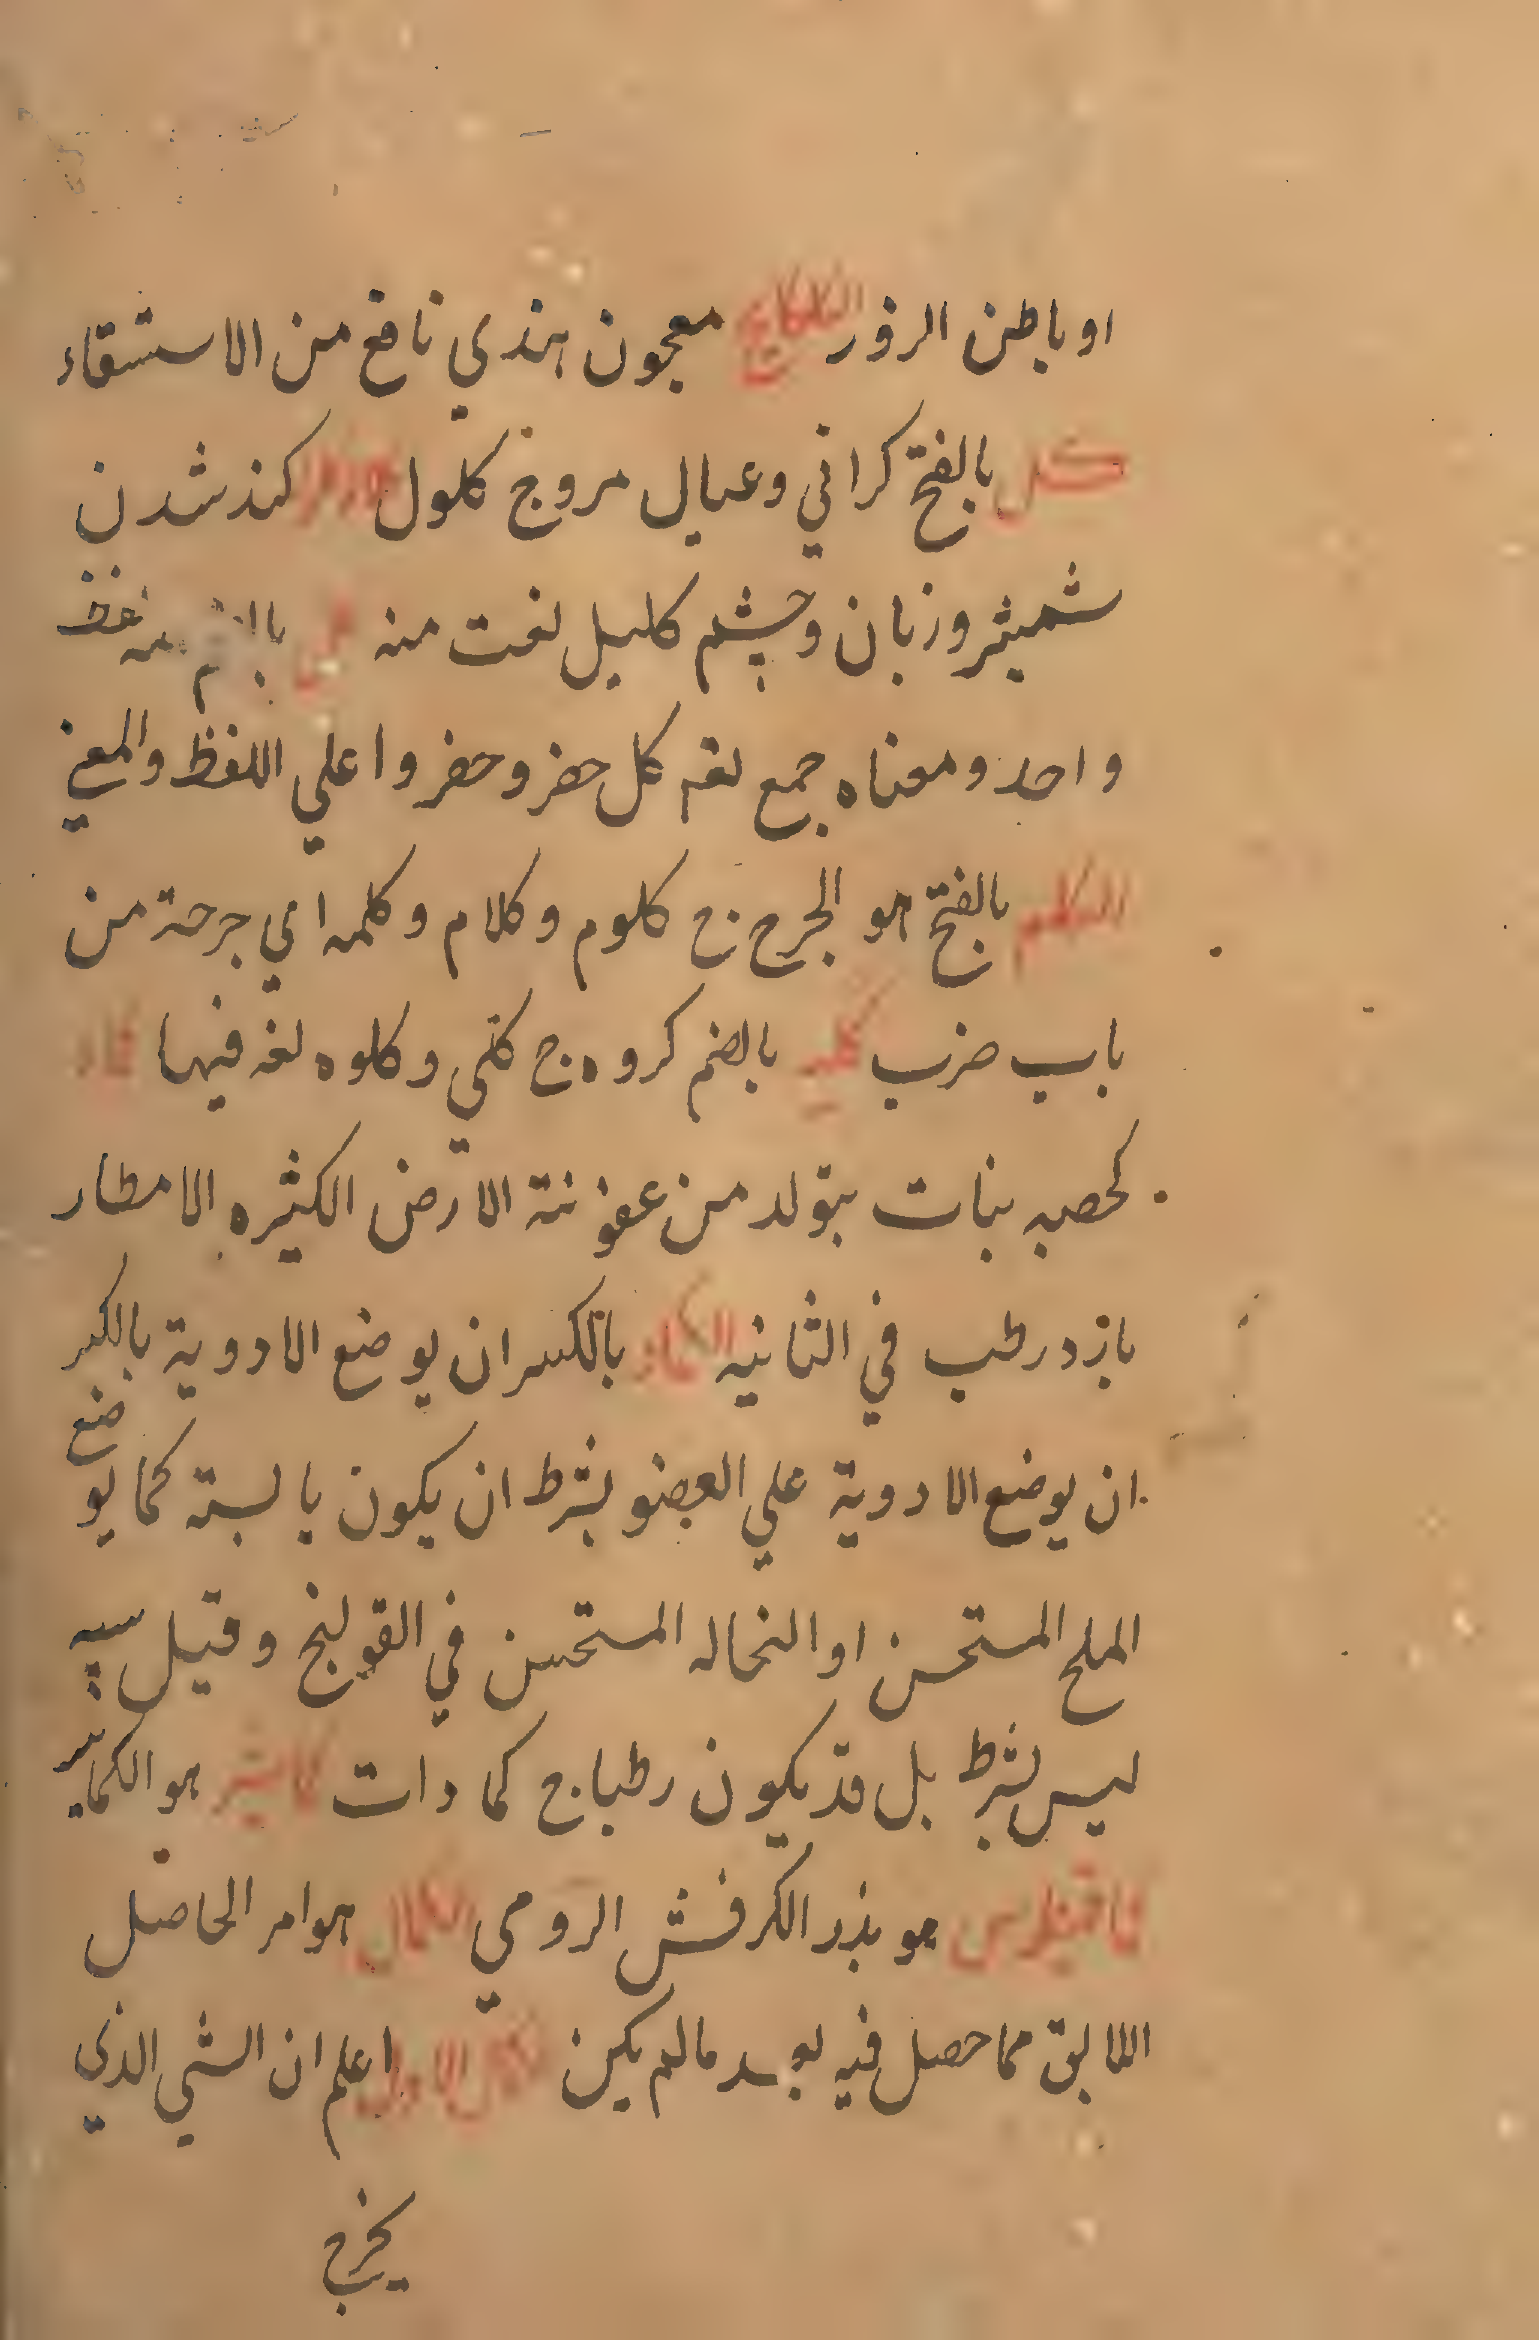 او باطن الزور الكلكلانج معجون هندي نافع من الاستسقاء
كل بالفتح كراني وعيال مروج كلول كند شدن
شمیشر و زبان وچشم كليل لغت منه بالضم لفظ
واحد و معناه جمع لقه كل حفر و حفروا علي اللفظ والمعني
الكلم بالفتح هو الجرح ج كلوم وكلام وكلمه اي جرحة من
باب ضرب كليه بالضم كروه ج كلي وكلوه لغه فيها كماه
كحصبه نبات يتولد من عفونة الارض الكثيره الامطار
بارد رطب في الثانيه الكماد بالكسر ان يوضع الادوية بالكسر
ان يوضع الادوية علي العضو بشرط ان يكون يابسته كما يو
ضع
الملح المستحسن او النخاله المستحسن في القولنج وقيل يبسه
ليس بشرط بل قد يكون رطبا ج كمادات كماشير هو الكماشير
هو بذر الكرفش الرومي الكمال هو امر الحاصل
اللابق مما حصل فيه بعد مالم يكن كمال الاول اعلم ان الشي الذي
يخرج